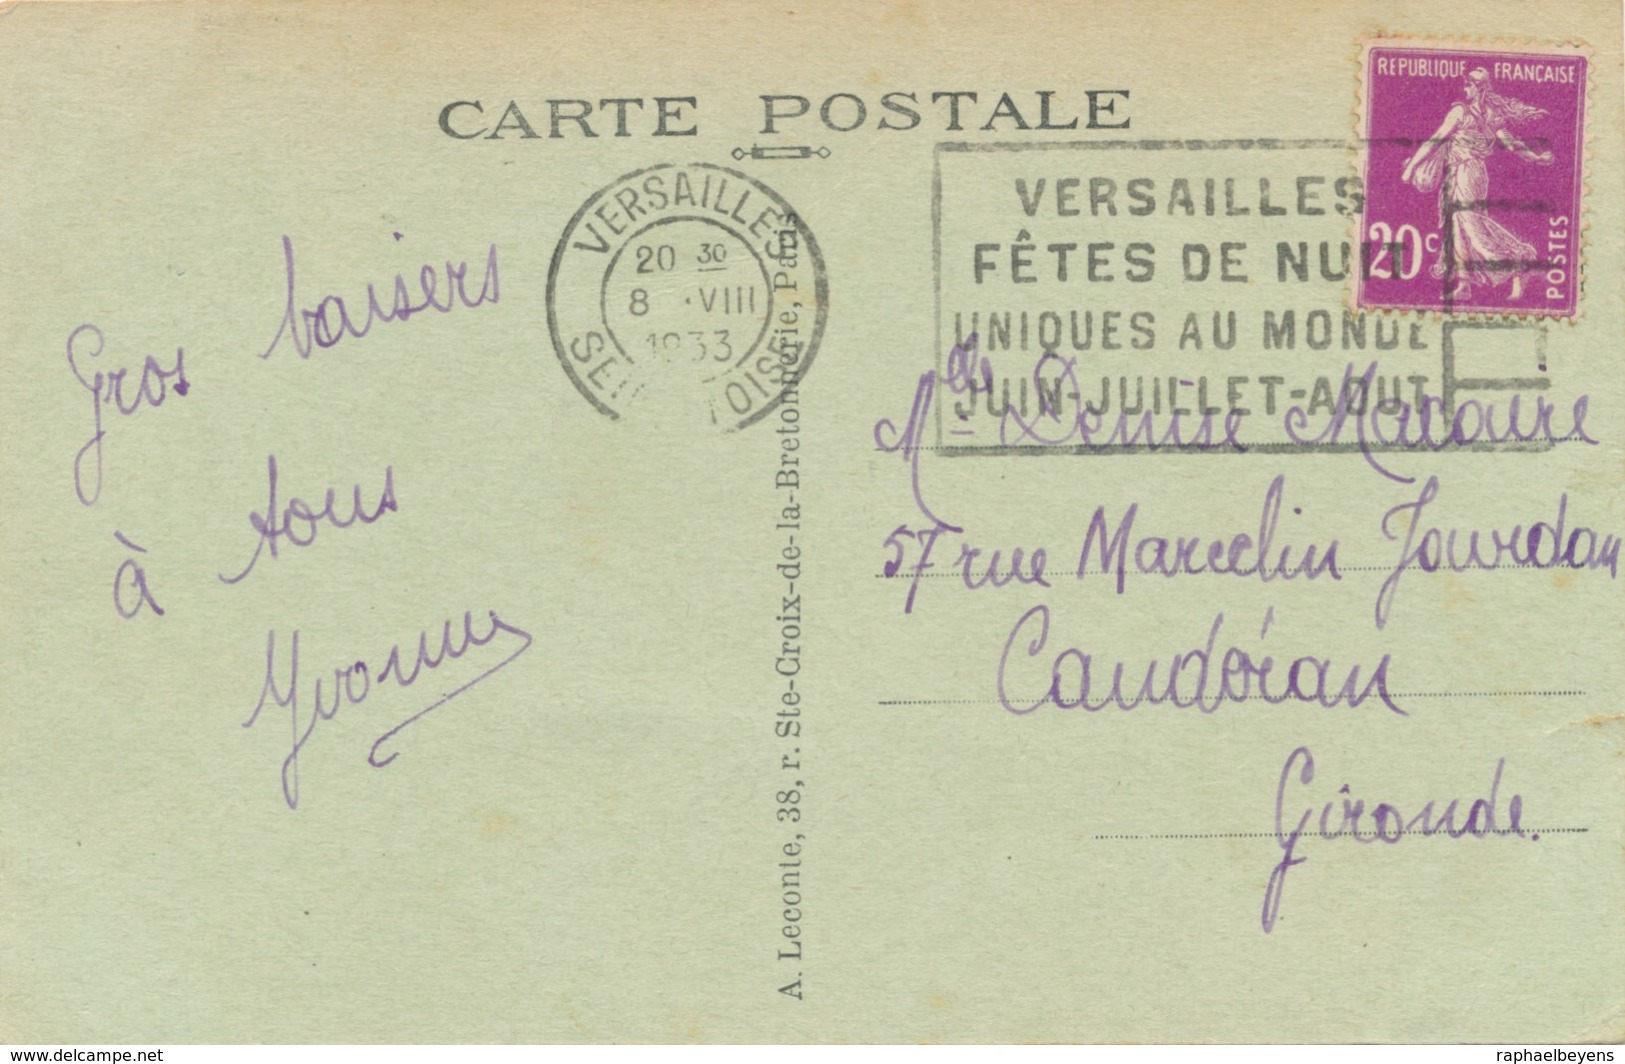 CARTE POSTALE
REPUBLIQUE FRANÇAISE
20c
POSTES
VERSAILLES
20 30
8 ·VIII
1933
OISE
VERSAILLES
FÊTES DE NUIT
UNIQUES AU MONDE
JUIN-JUILLET-AOUT
Gros baisers
à tous
Yvonne
A. Leconte, 38, r. Ste-Croix-de-la-Bretonnerie, Paris
Mlle Denise Macaire
57 rue Marcelin Jourdan
Caudéran
Gironde.
www.delcampe.net
raphaelbeyens